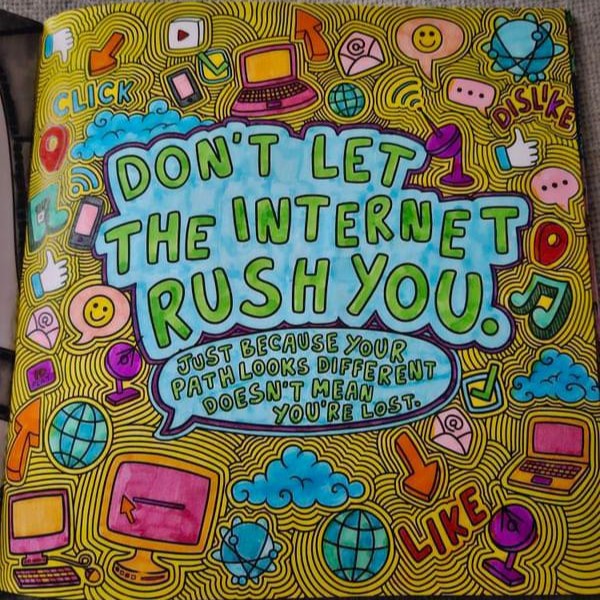 CLICK
DISLIKE
DON'T LET
THE INTERNET
RUSH YOU.
JUST BECAUSE YOUR
PATH LOOKS DIFFERENT
DOESN'T MEAN
YOU'RE LOST.
LIKE